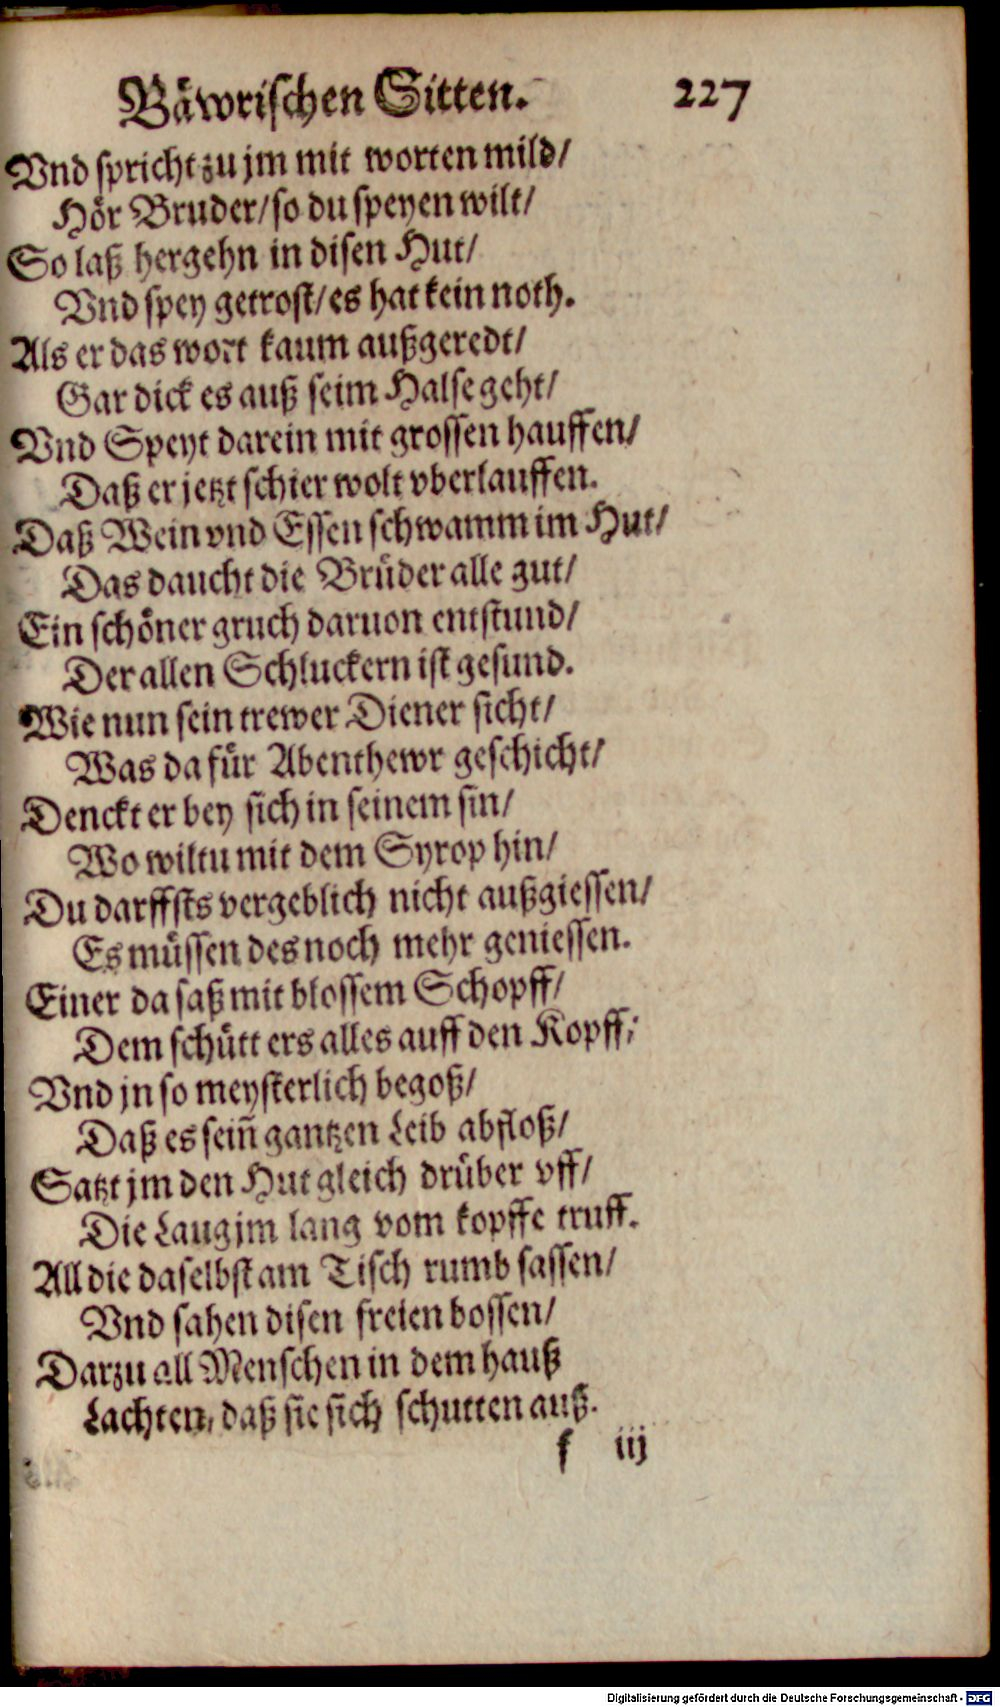 Bäwrischen Sitten. 227
Vnd spricht zu jm mit worten mild/
Hör Bruder/ so du speyen wilt/
So laß hergehn in disen Hut/
Vnd spey getrost/ es hat kein noth.
Als er das wort kaum außgeredt/
Gar dick es auß seim Halse geht/
Vnd Speyt darein mit grossen hauffen/
Daß er jetzt schier wolt vberlauffen.
Daß Wein vnd Essen schwamm im Hut/
Das daucht die Brüder alle gut/
Ein schöner gruch daruon entstund/
Der allen Schluckern ist gesund.
Wie nun sein trewer Diener sicht/
Was da für Abenthewr geschicht/
Denckt er bey sich in seinem sin/
Wo wiltu mit dem Syrop hin/
Du darffsts vergeblich nicht außgiessen/
Es müssen des noch mehr geniessen.
Einer da saß mit blossem Schopff/
Dem schütt ers alles auff den Kopff/
Vnd jn so meysterlich begoß/
Daß es sein̄ gantzen Leib abfloß/
Satzt jm den Hut gleich drüber vff/
Die Laug jm lang vom kopffe truff.
All die daselbst am Tisch rumb sassen/
Vnd sahen disen freien bossen/
Darzu all Menschen in dem hauß
Lachten, daß sie sich schutten auß.
f iij
Digitalisierung gefördert durch die Deutsche Forschungsgemeinschaft - DFG